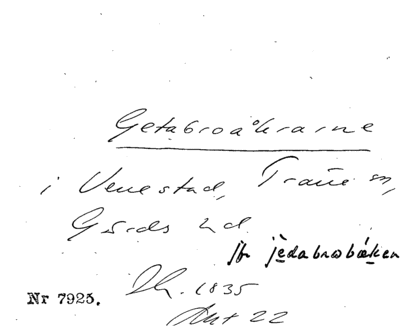 Getabroåkrarne
i Venestad, Träne sn,
Gärds hd.
jfr jèdabrobäken
Sk. 1835
Akt 22
Nr 7925.